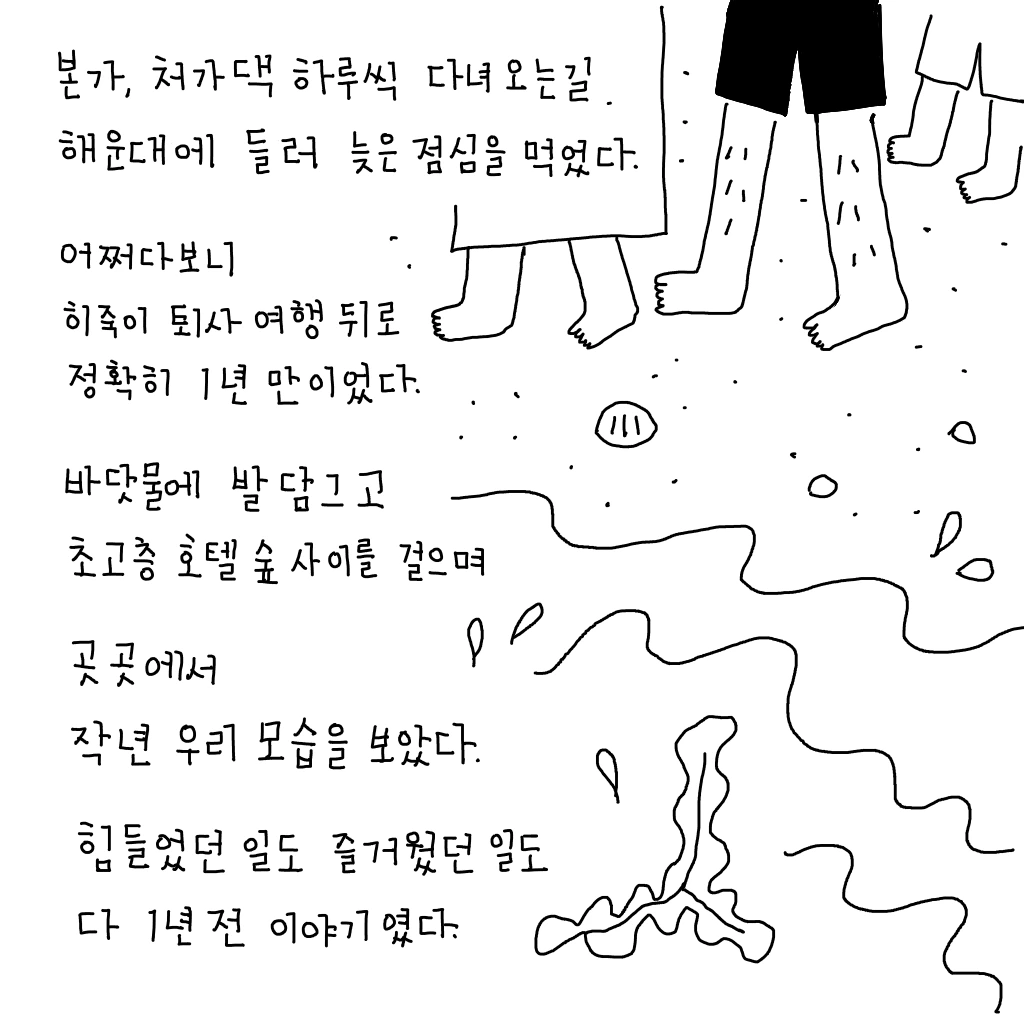 본가, 처가댁 하루씩 다녀오는길.
해운대에 들러 늦은 점심을 먹었다.
어쩌다보니
히죽이 퇴사 여행 뒤로
정확히 1년 만이었다.
바닷물에 발 담그고
초고층 호텔 숲 사이를 걸으며
곳곳에서
작년 우리 모습을 보았다.
힘들었던 일도 즐거웠던 일도
다 1년 전 이야기였다.